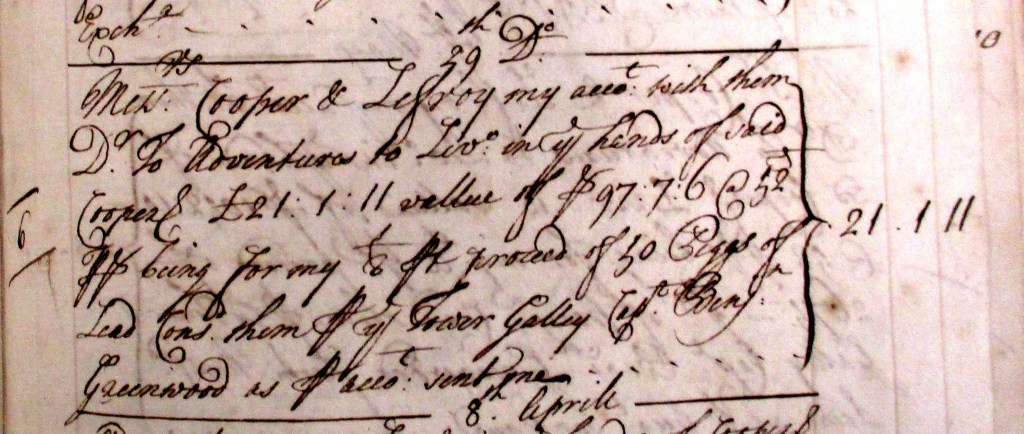 Exch.a
29th Do
Messrs: Cooper & Lefroy my acco.t with them
Dr. To Adventures to Livo: in ye hands of said
Cooper & £21:1:11 vallue of $97:7:6 @ 52
6
being for my 1/8 pt proceed of 50 Piggs of
21 . 1 11
Lead Consd. them ye Tower Galley Capt. Benj:n
Greenwood as acco:t sent me
8th Aprill
Cooper